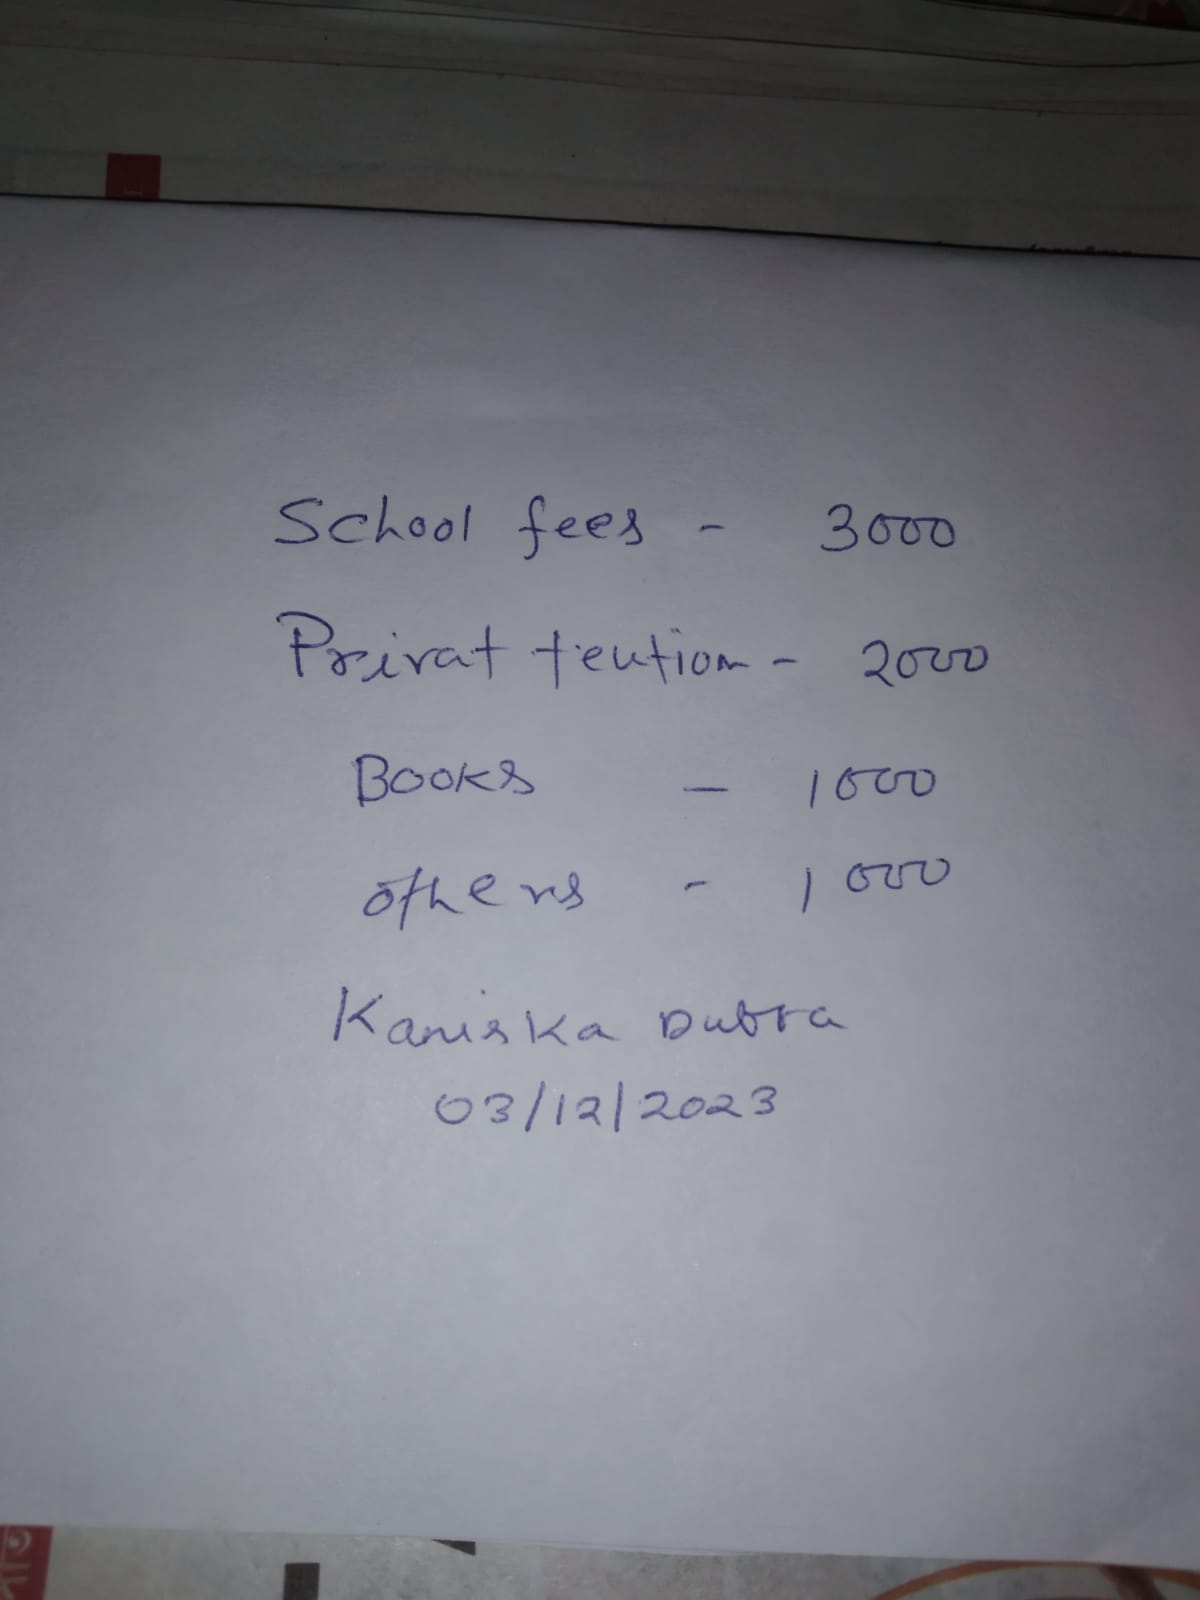 School fees - 3000
Privat teution - 2000
Books - 1000
others - 1000
Kaniska Dutta
03/12/2023